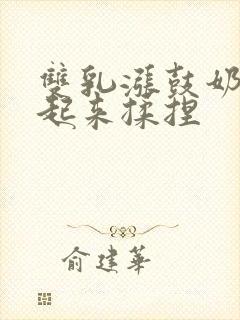 雙乳漲鼓奶
起来揉捏
俞建華